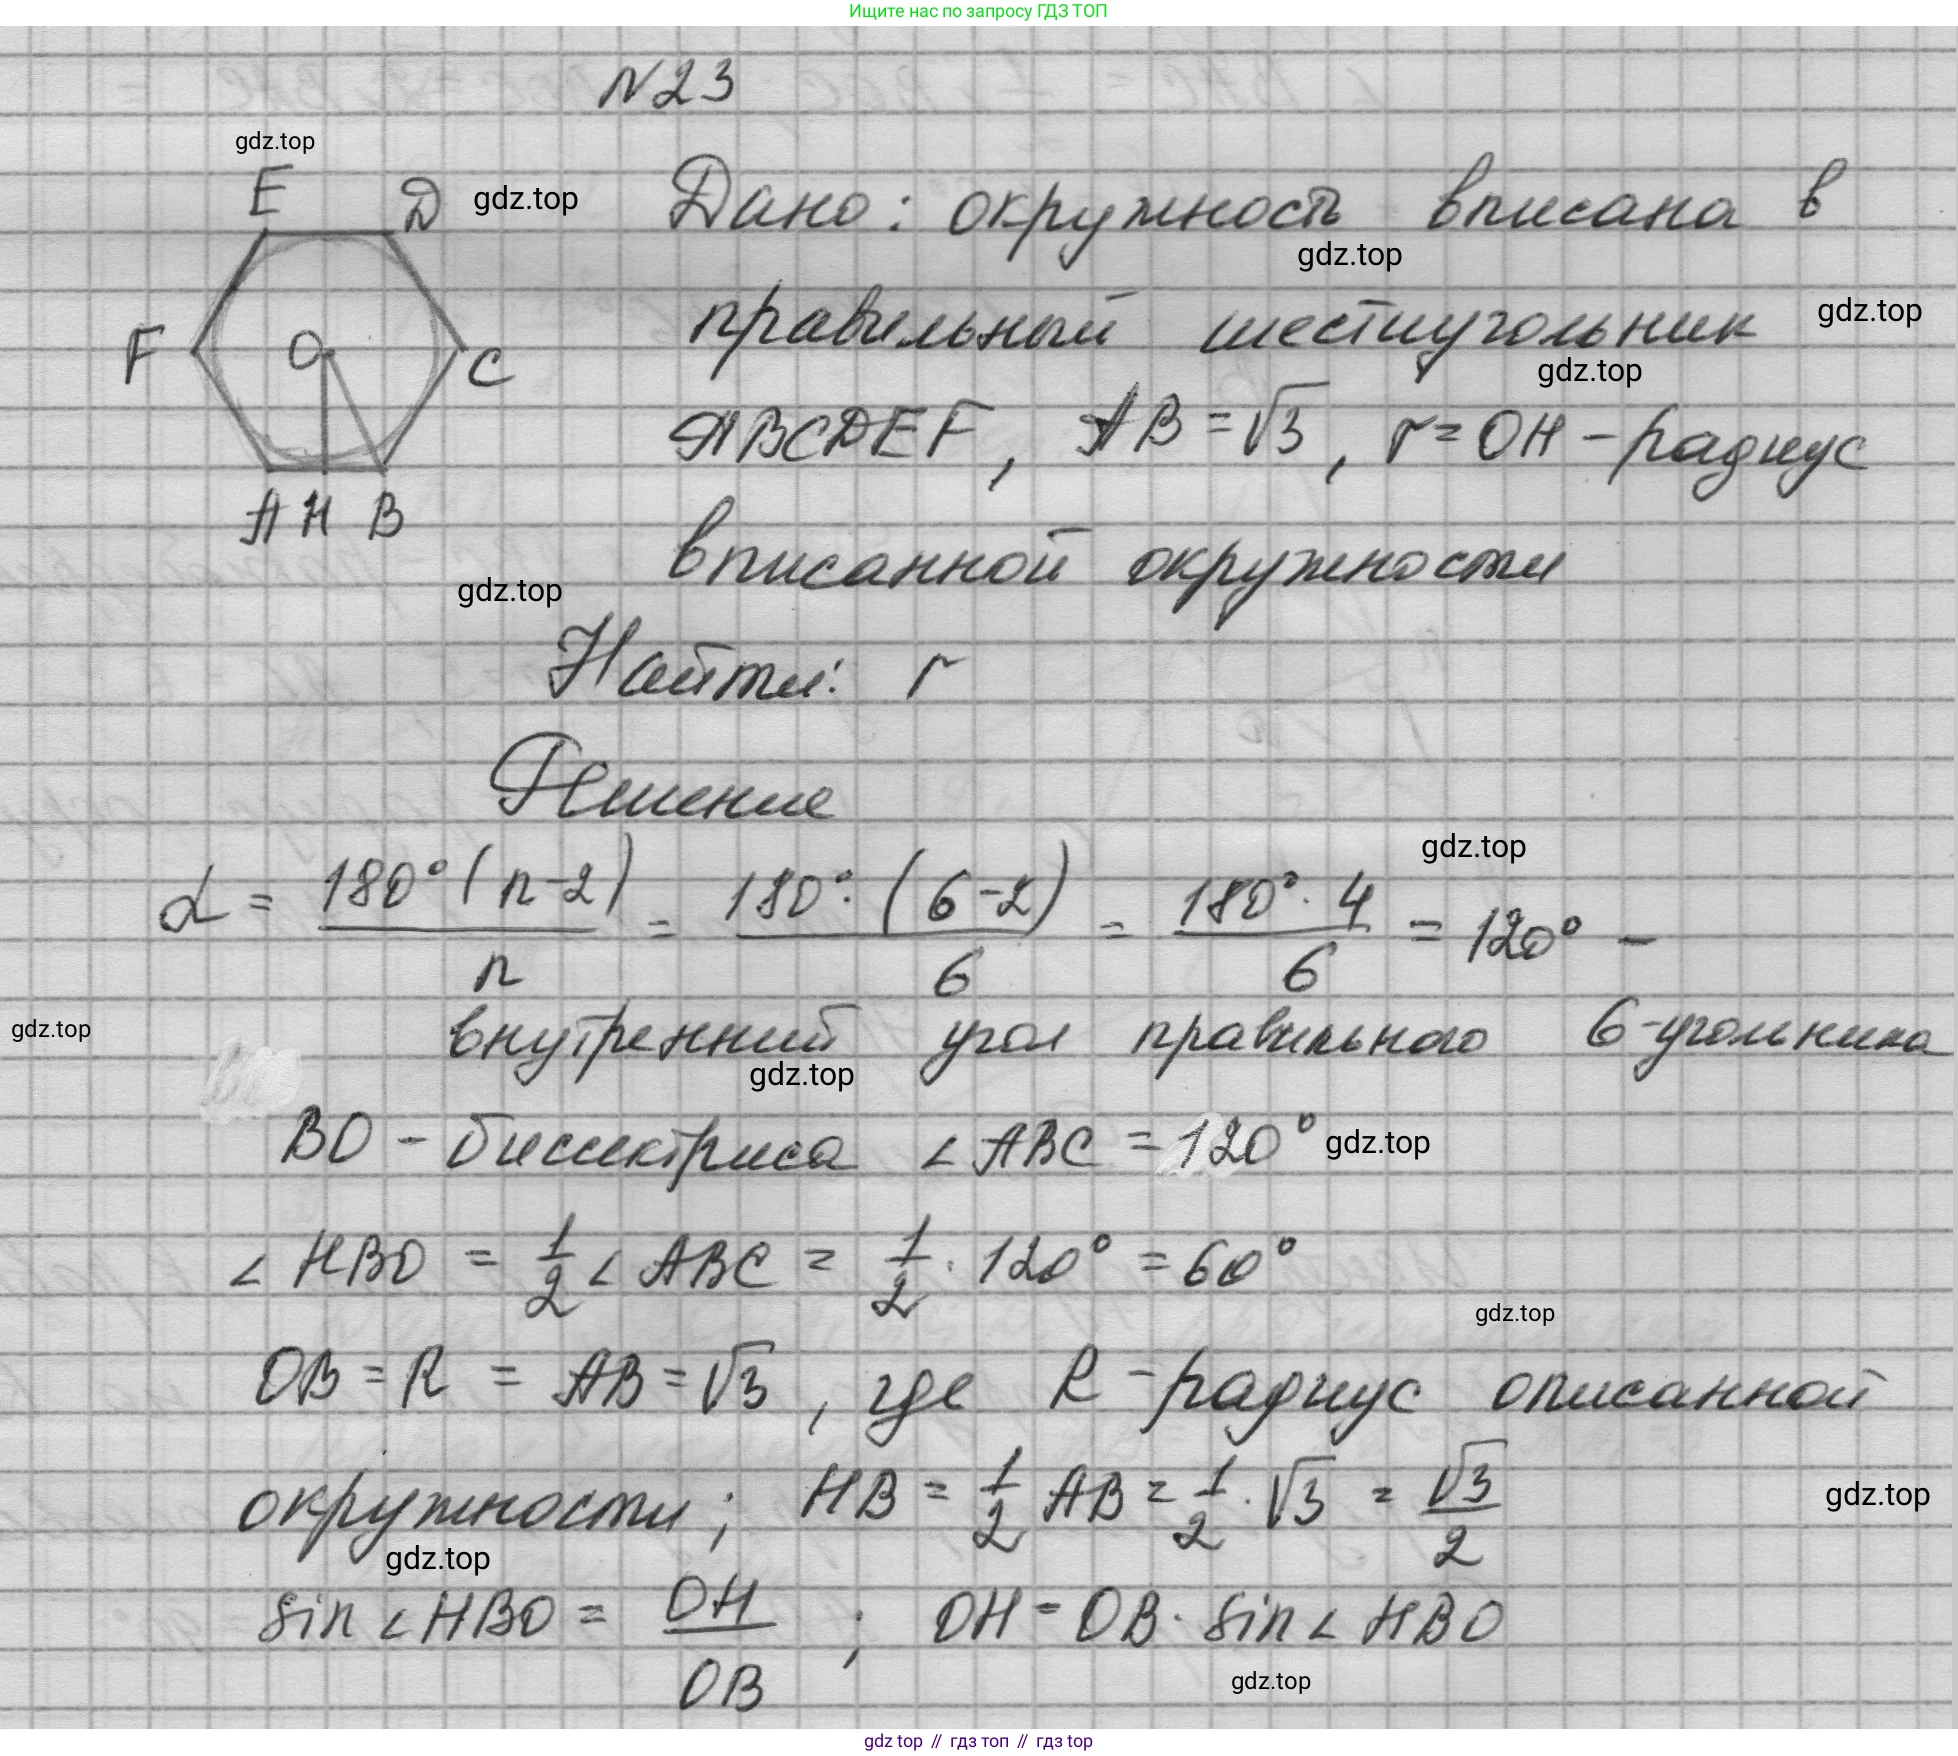 Ищите нас по запросу ГДЗ ТОП
N23
gdz.top
E D gdz.top
Дано: окружность вписана в
gdz.top
правильный шестиугольник gdz.top
F O C
gdz.top
ABCDEF, AB = √3, r = OH - радиус
A H B
вписанной окружности
gdz.top
Найти: r
Решение
gdz.top
α = 180°(n-2)/n = 180°·(6-2)/6 = 180°·4/6 = 120° -
gdz.top
внутренний угол правильного 6-угольника
gdz.top
BO - биссектриса ∠ABC = 120° gdz.top
∠HBO = 1/2 ∠ABC = 1/2 · 120° = 60°
gdz.top
OB = R = AB = √3, где R - радиус описанной
окружности; HB = 1/2 AB = 1/2 · √3 = √3/2 gdz.top
gdz.top
sin ∠HBO = OH/OB ; OH = OB · sin ∠HBO
gdz.top
gdz top // гдз топ // гдз top